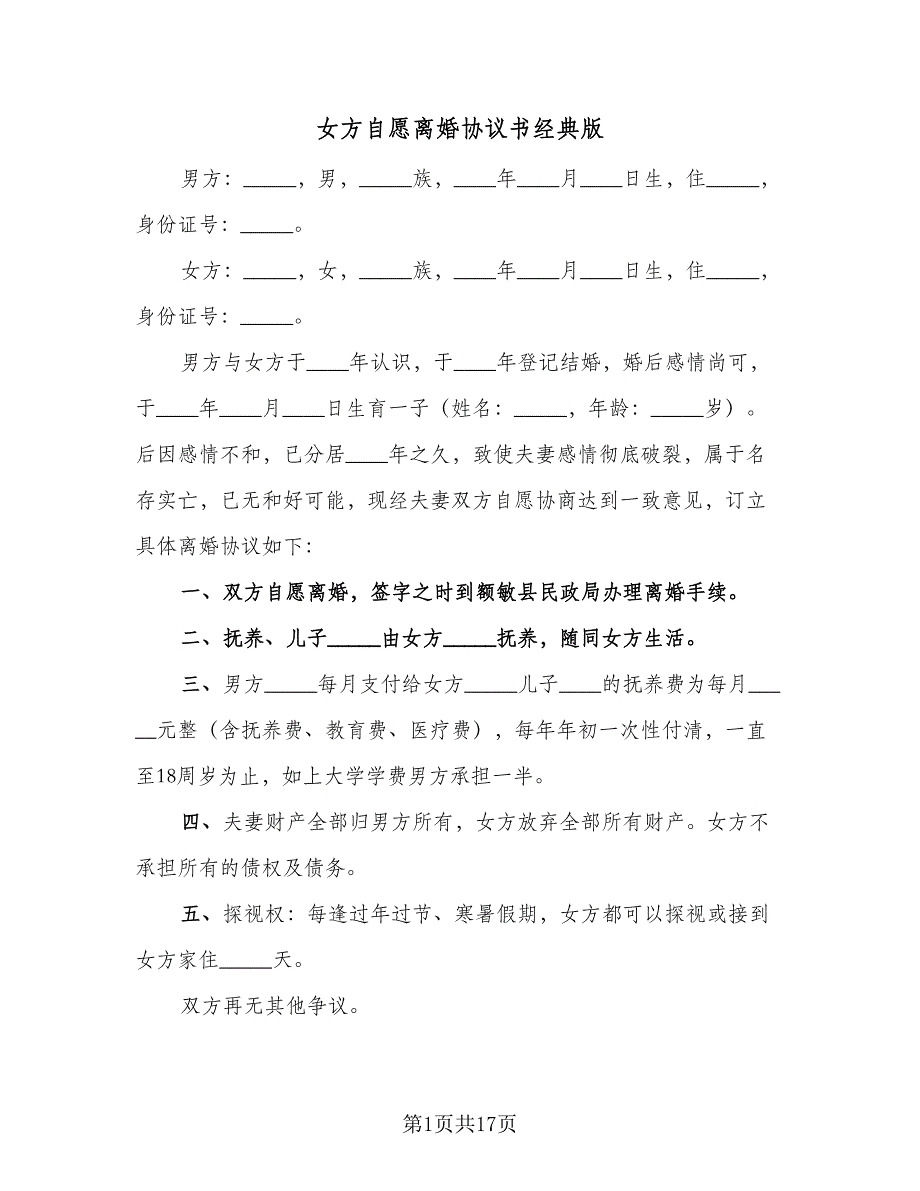 女方自愿离婚协议书经典版
男方：_____，男，_____族，____年____月____日生，住_____，
身份证号：_____。
女方：_____，女，_____族，____年____月____日生，住_____，
身份证号：_____。
男方与女方于____年认识，于____年登记结婚，婚后感情尚可，
于____年____月____日生育一子（姓名：_____，年龄：_____岁）。
后因感情不和，已分居____年之久，致使夫妻感情彻底破裂，属于名
存实亡，已无和好可能，现经夫妻双方自愿协商达到一致意见，订立
具体离婚协议如下：
一、双方自愿离婚，签字之时到额敏县民政局办理离婚手续。
二、抚养、儿子_____由女方_____抚养，随同女方生活。
三、男方_____每月支付给女方_____儿子____的抚养费为每月___
__元整（含抚养费、教育费、医疗费），每年年初一次性付清，一直
至18周岁为止，如上大学学费男方承担一半。
四、夫妻财产全部归男方所有，女方放弃全部所有财产。女方不
承担所有的债权及债务。
五、探视权：每逢过年过节、寒暑假期，女方都可以探视或接到
女方家住_____天。
双方再无其他争议。
第1页共17页